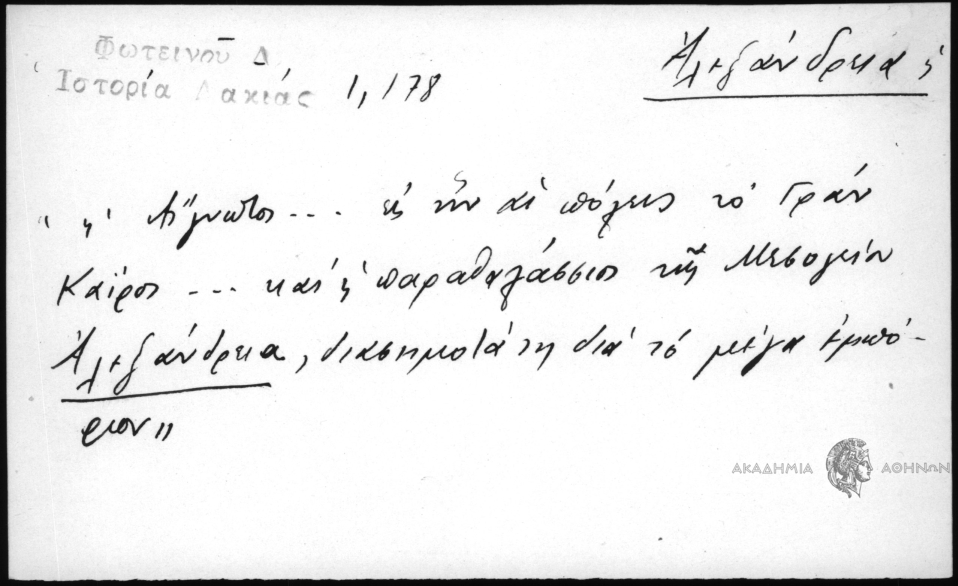 Φωτεινοῦ Δ
Ἱστορία Δακίας 1, 178
Ἀλεξάνδρεια ἡ
" ἡ Αἴγυπτος ... εἰς ἣν αἱ πόλεις τὸ Γράν
Κάϊρος ... καὶ ἡ παραθαλάσσιος τῆς Μεσογείου
Ἀλεξάνδρεια, διασημοτάτη διὰ τὸ μέγα ἐμπό-
ριον"
ΑΚΑΔΗΜΙΑ ΑΘΗΝΩΝ